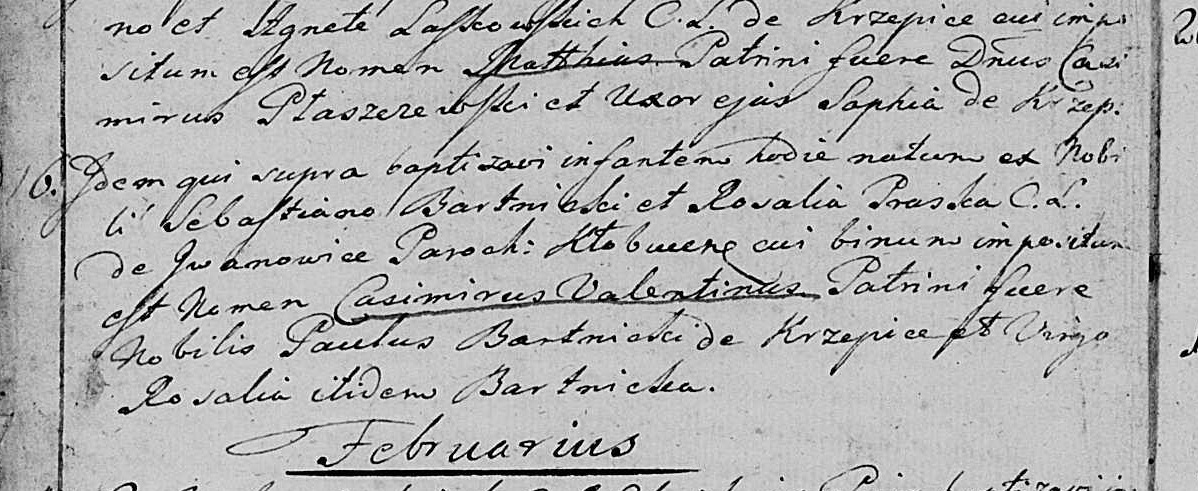 no et Agnete Laskowskich C. L. de Krzepice cui impo
situm est Nomen Matthius Patrini fuere Dnus Casi
mirus Ptaszerewski et Uxor ejus Sophia de Krzep:
16. Idem qui supra baptizavi infantem hodie natum ex Nobi
li Sebastiano Bartnicki et Rosalia Praska C. L.
de Jwanowice Paroch: Kłobucens cui binum impositum
est Nomen Casimirus Valentinus Patrini fuere
Nobilis Paulus Bartnicki de Krzepice et Virgo
Rosalia itidem Bartnicka.
Februarius